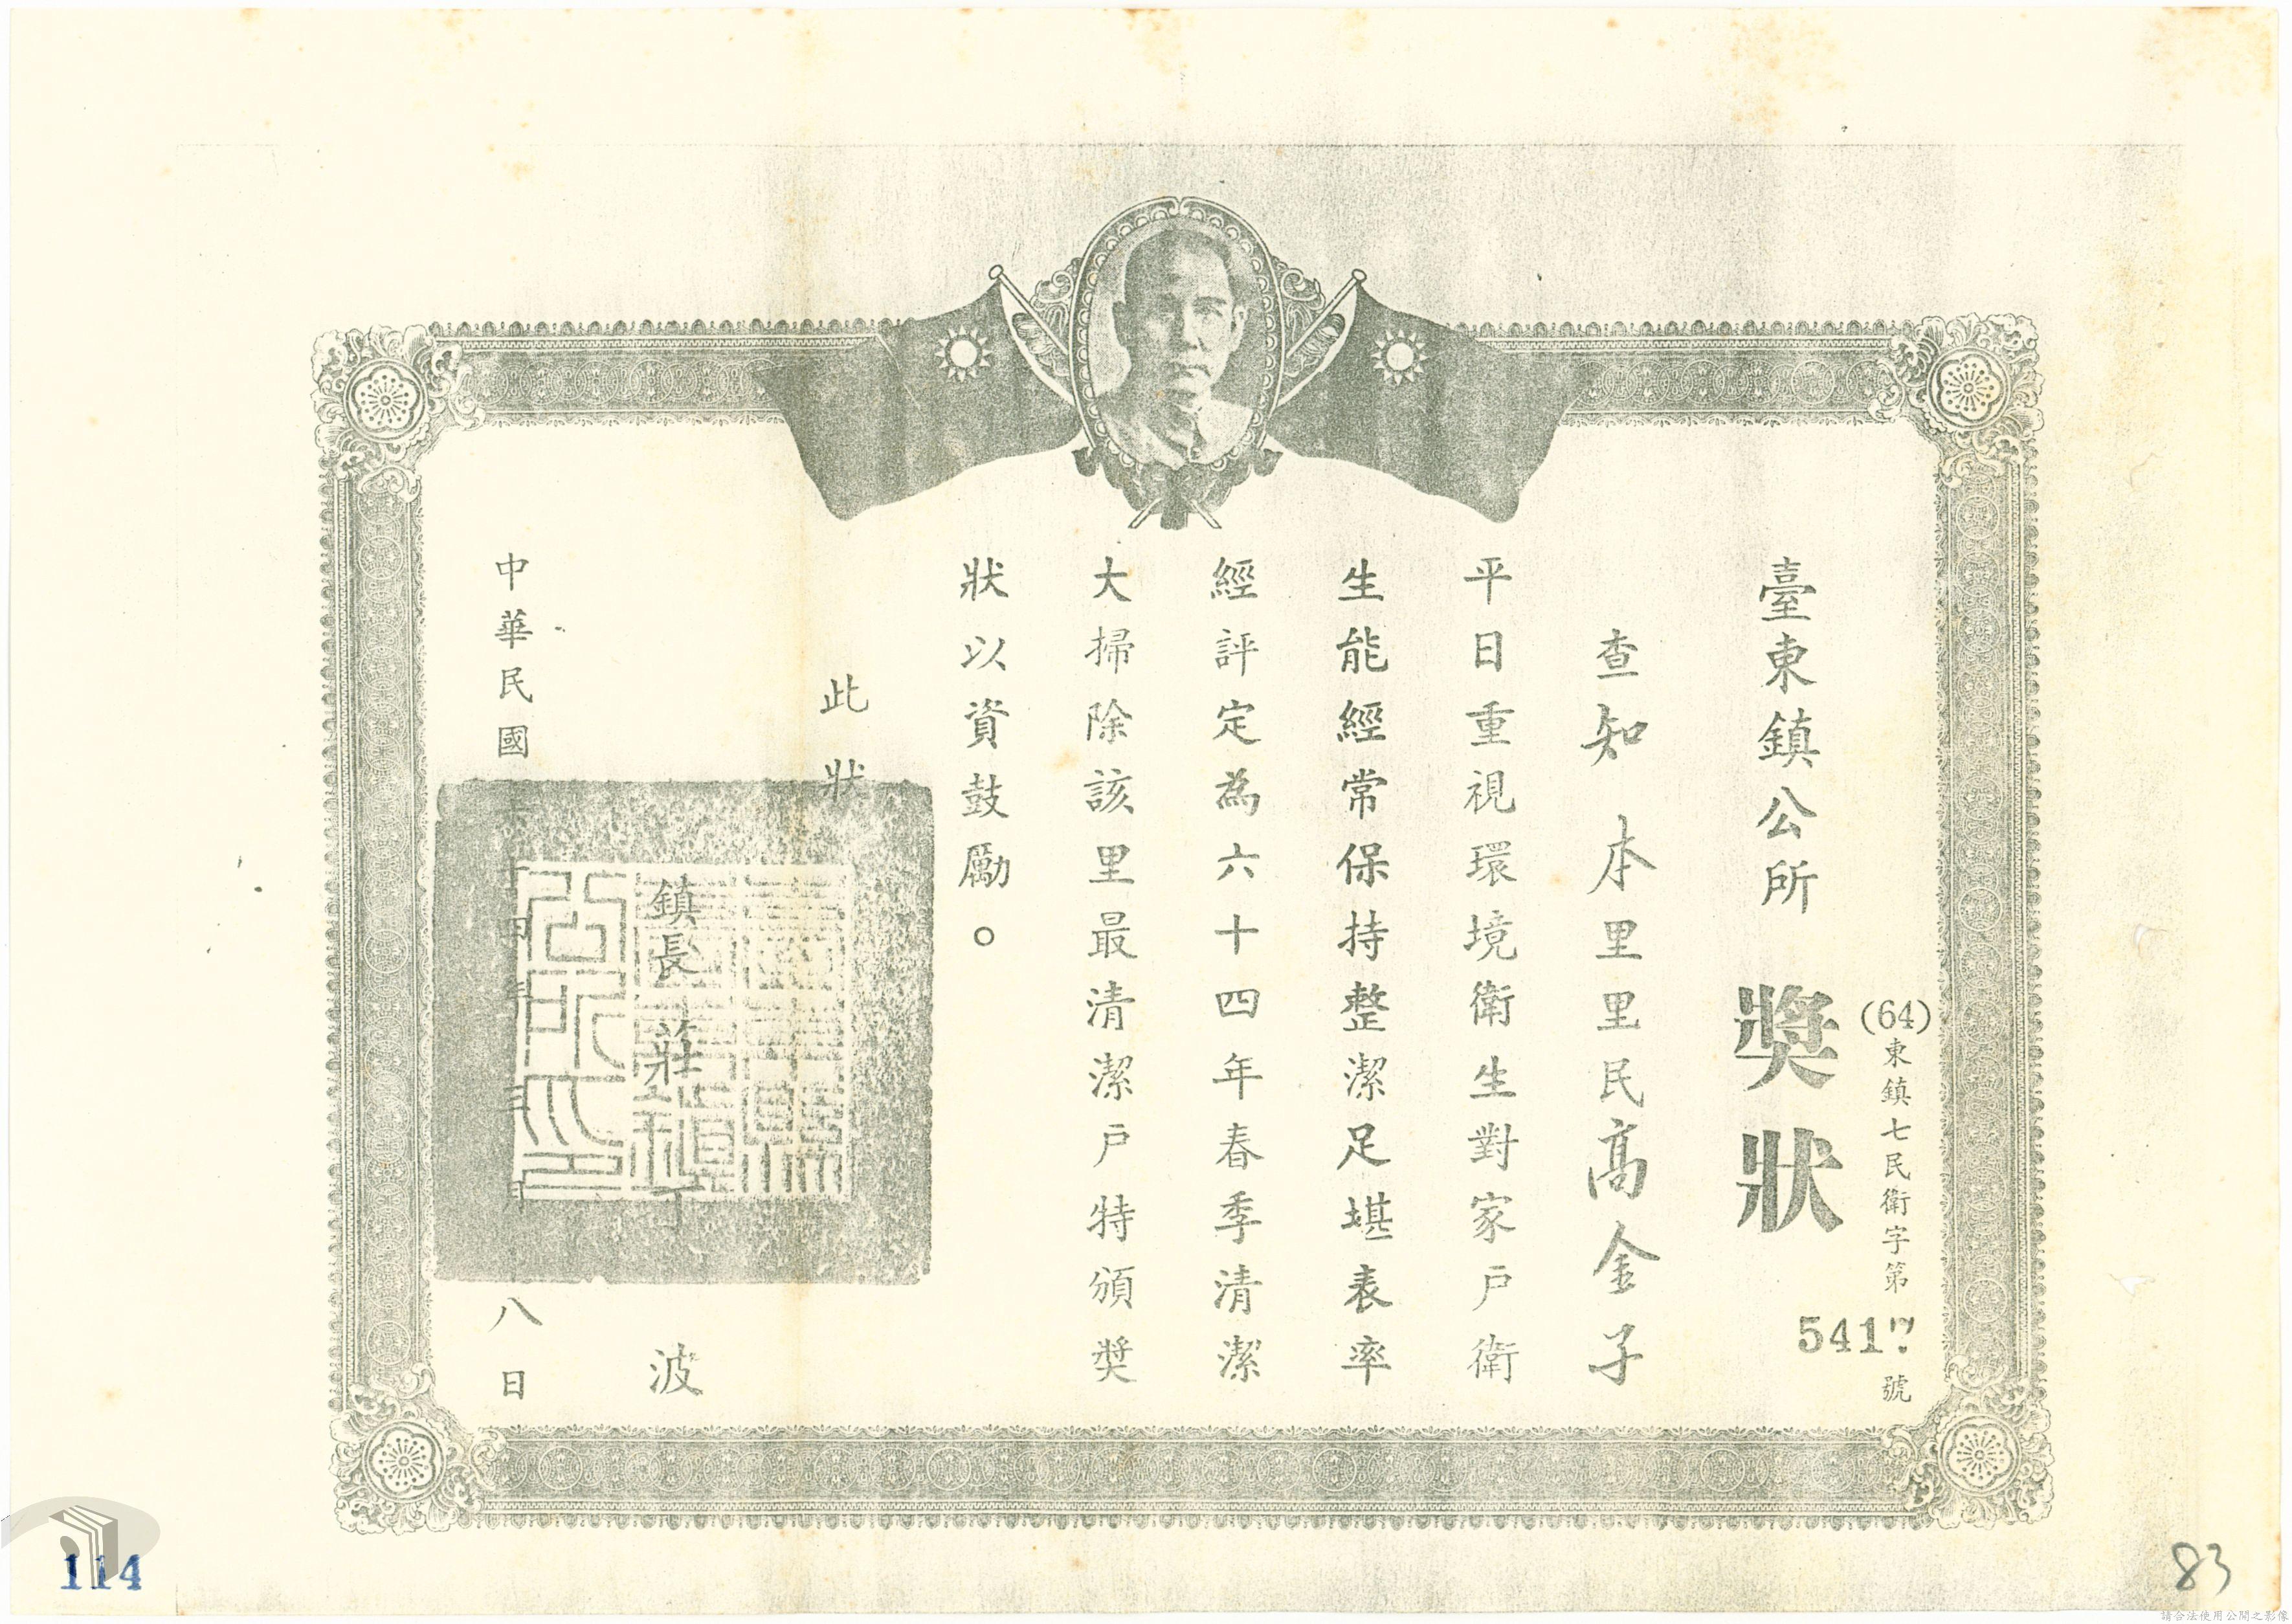 (64)東鎮七民衛字第5417號
臺東鎮公所 獎狀
查知本里里民高金子
平日重視環境衛生對家戶衛
生能經常保持整潔足堪表率
經評定為六十四年春季清潔
大掃除該里最清潔戶特頒獎
狀以資鼓勵。
此狀
鎮長 莊丁波
中華民國六十四年三月八日
114
83
請合法使用公開之影像